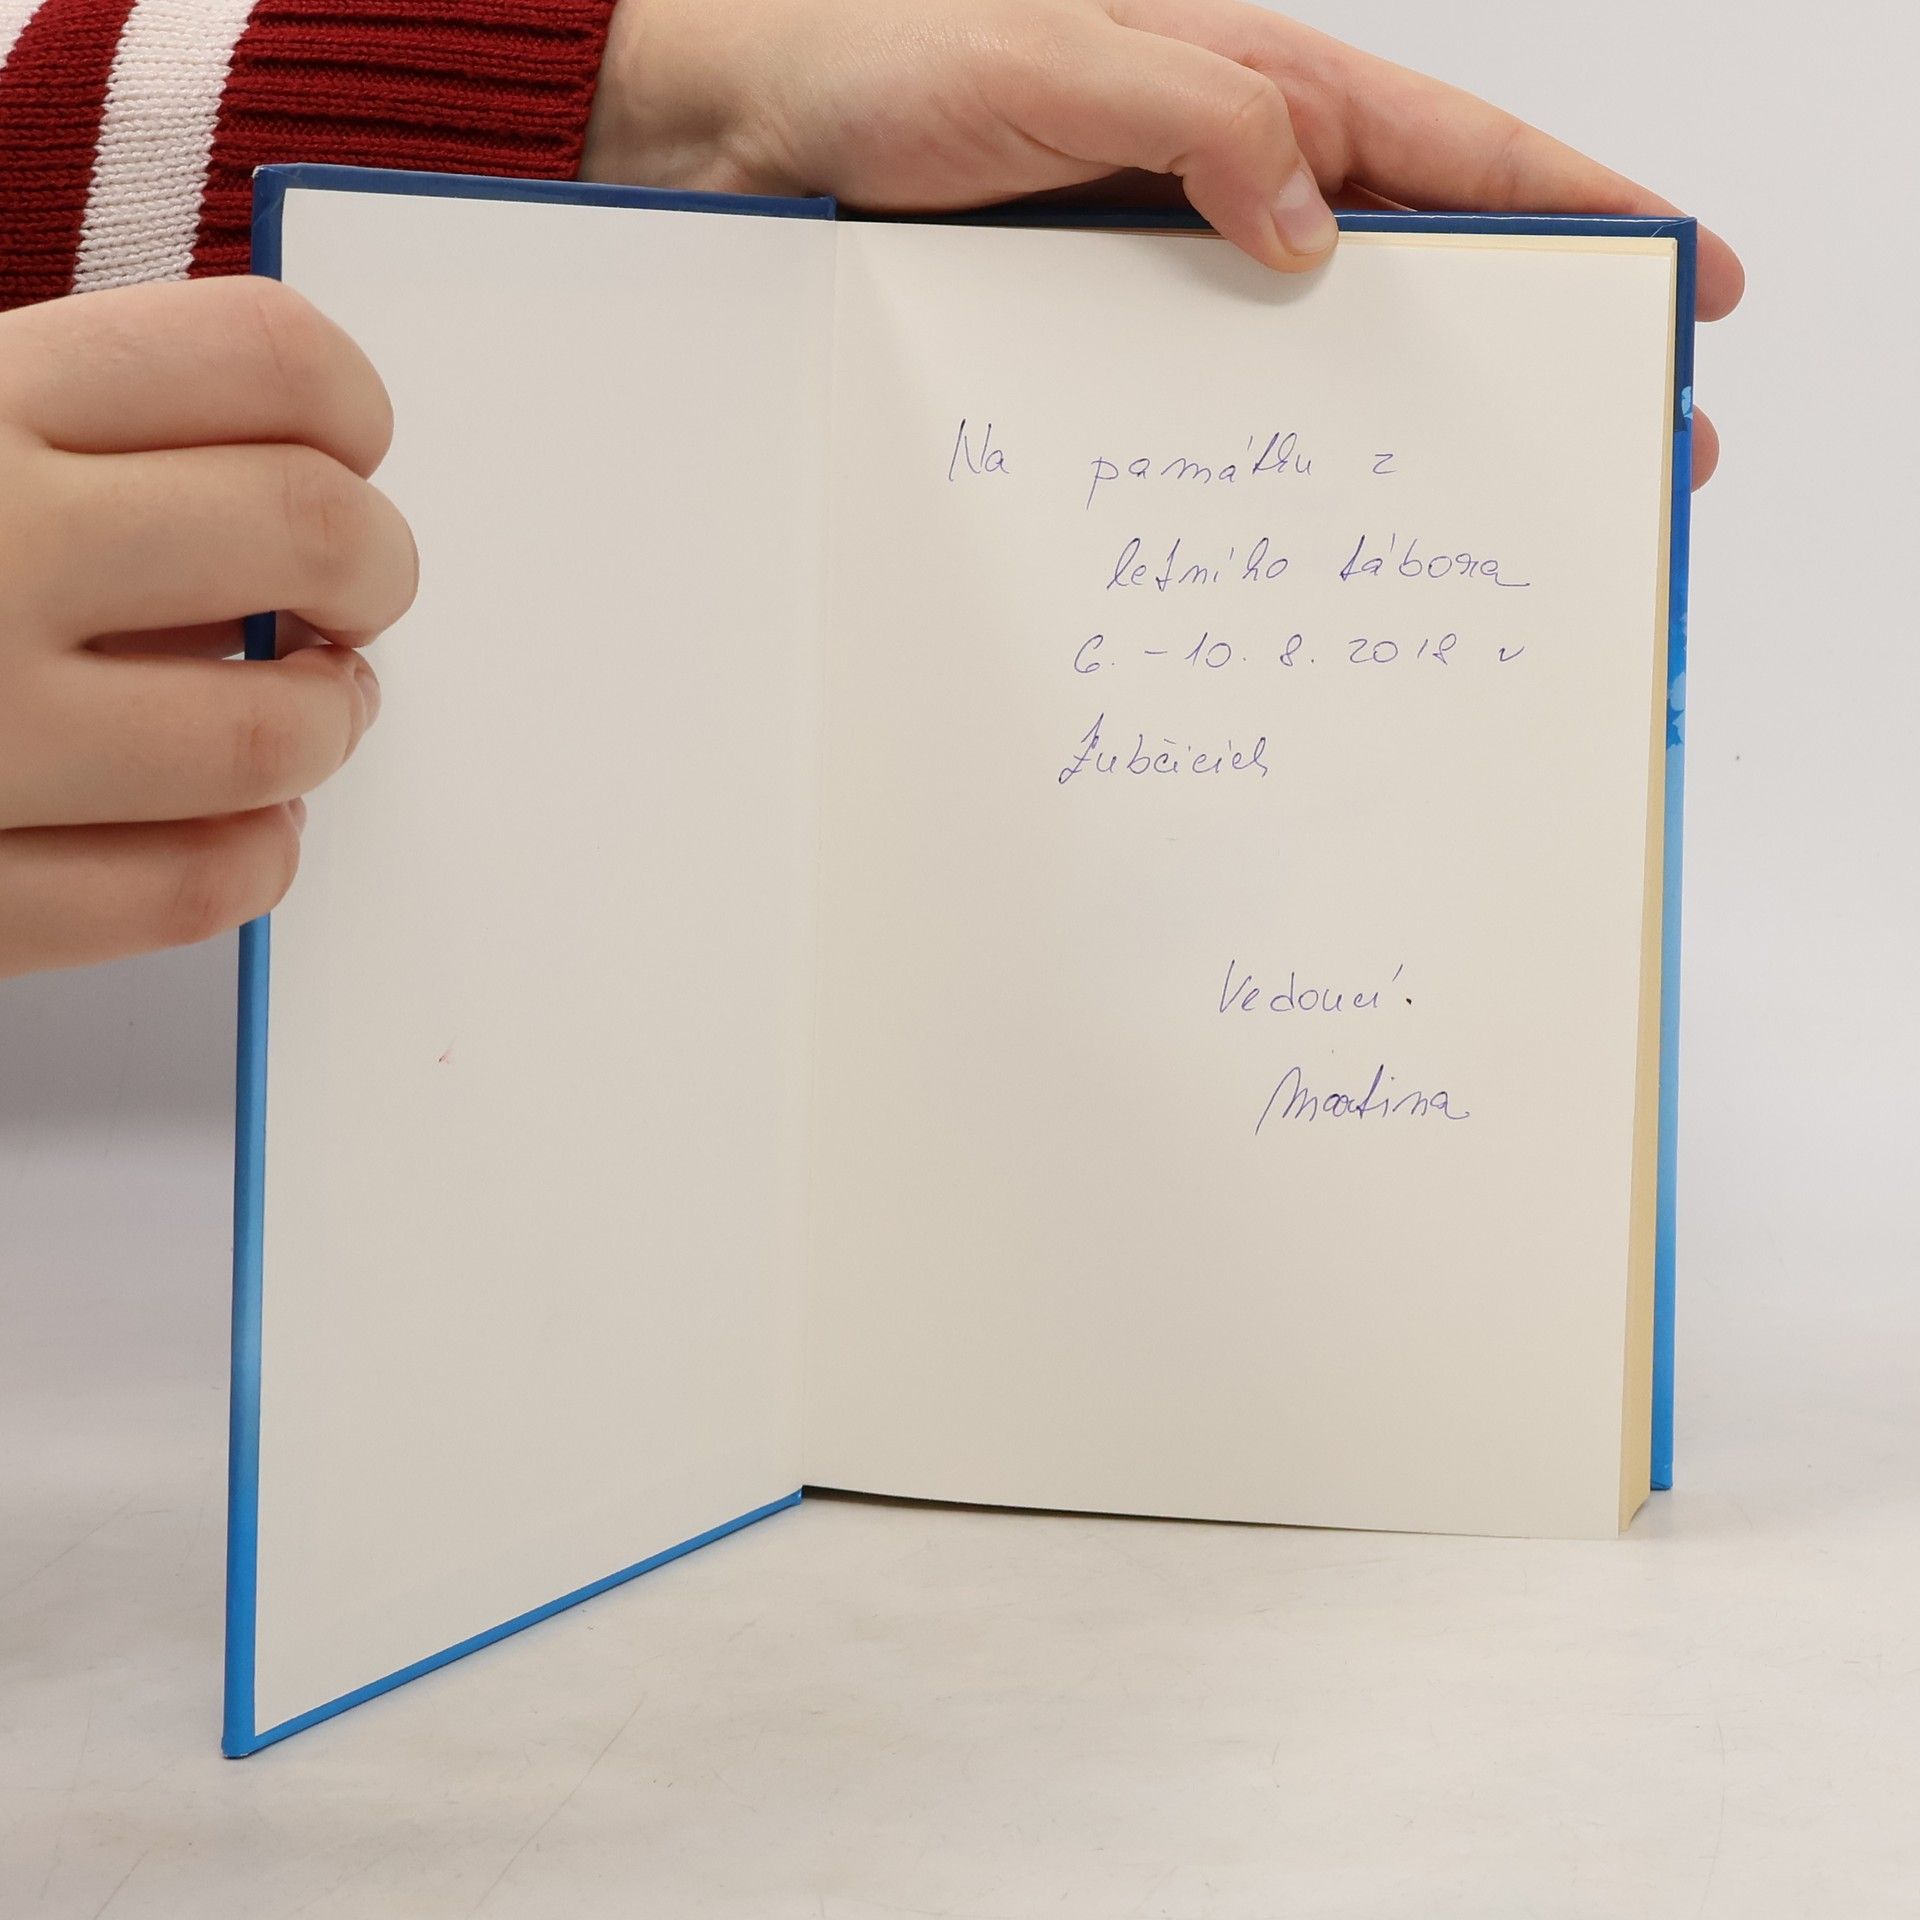 Na památku z
letního tábora
6. - 10. 8. 2018 v
Zubčicích
Vedoucí.
Martina